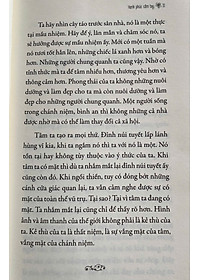 hạnh phúc cầm tay
Ta hãy nhìn cây táo trước sân nhà, nó là một thực
tại mầu nhiệm. Hãy để ý, làm và chăm sóc nó, ta
sẽ hưởng được sự mầu nhiệm ấy. Mới có một tuần mà
nó tươi tốt hẳn lên, những chiếc lá xanh hơn và bóng
hơn. Những người chung quanh ta cũng vậy. Nhờ có
tỉnh thức mà ta để tâm nhiều hơn, thương yêu hơn và
thông cảm hơn. Phong thái của ta không những nuôi
dưỡng và làm đẹp cho ta mà còn nuôi dưỡng và làm
đẹp cho những người chung quanh. Một người trong
gia đình có an lạc, bình an thì không những cả nhà
được nhờ mà có thể làm thay đổi cả xã hội.
Tâm ta tạo ra mọi thứ. Đỉnh núi tuyết lấp lánh
hùng vĩ kia, khi ta ngắm nó thì ta với nó là một. Nó
tồn tại hay không tùy thuộc vào ý thức của ta. Khi
tâm ta có mặt thì dù ta nhắm mắt lại đỉnh núi tuyết ấy
cũng còn đó. Khi ngồi thiền, tuy có đóng bớt những
cánh cửa giác quan lại, ta vẫn cảm nghe được sự có
mặt của toàn thể vũ trụ. Tại sao? Tại vì tâm ta đang có
mặt. Ta nhắm mắt lại cũng chỉ để thấy rõ hơn. Hình
và âm thanh của thế giới không phải là kẻ thù của
ta. Kẻ thù của ta là thất niệm, là sự vắng mặt của tâm,
vắng mặt của chánh niệm.